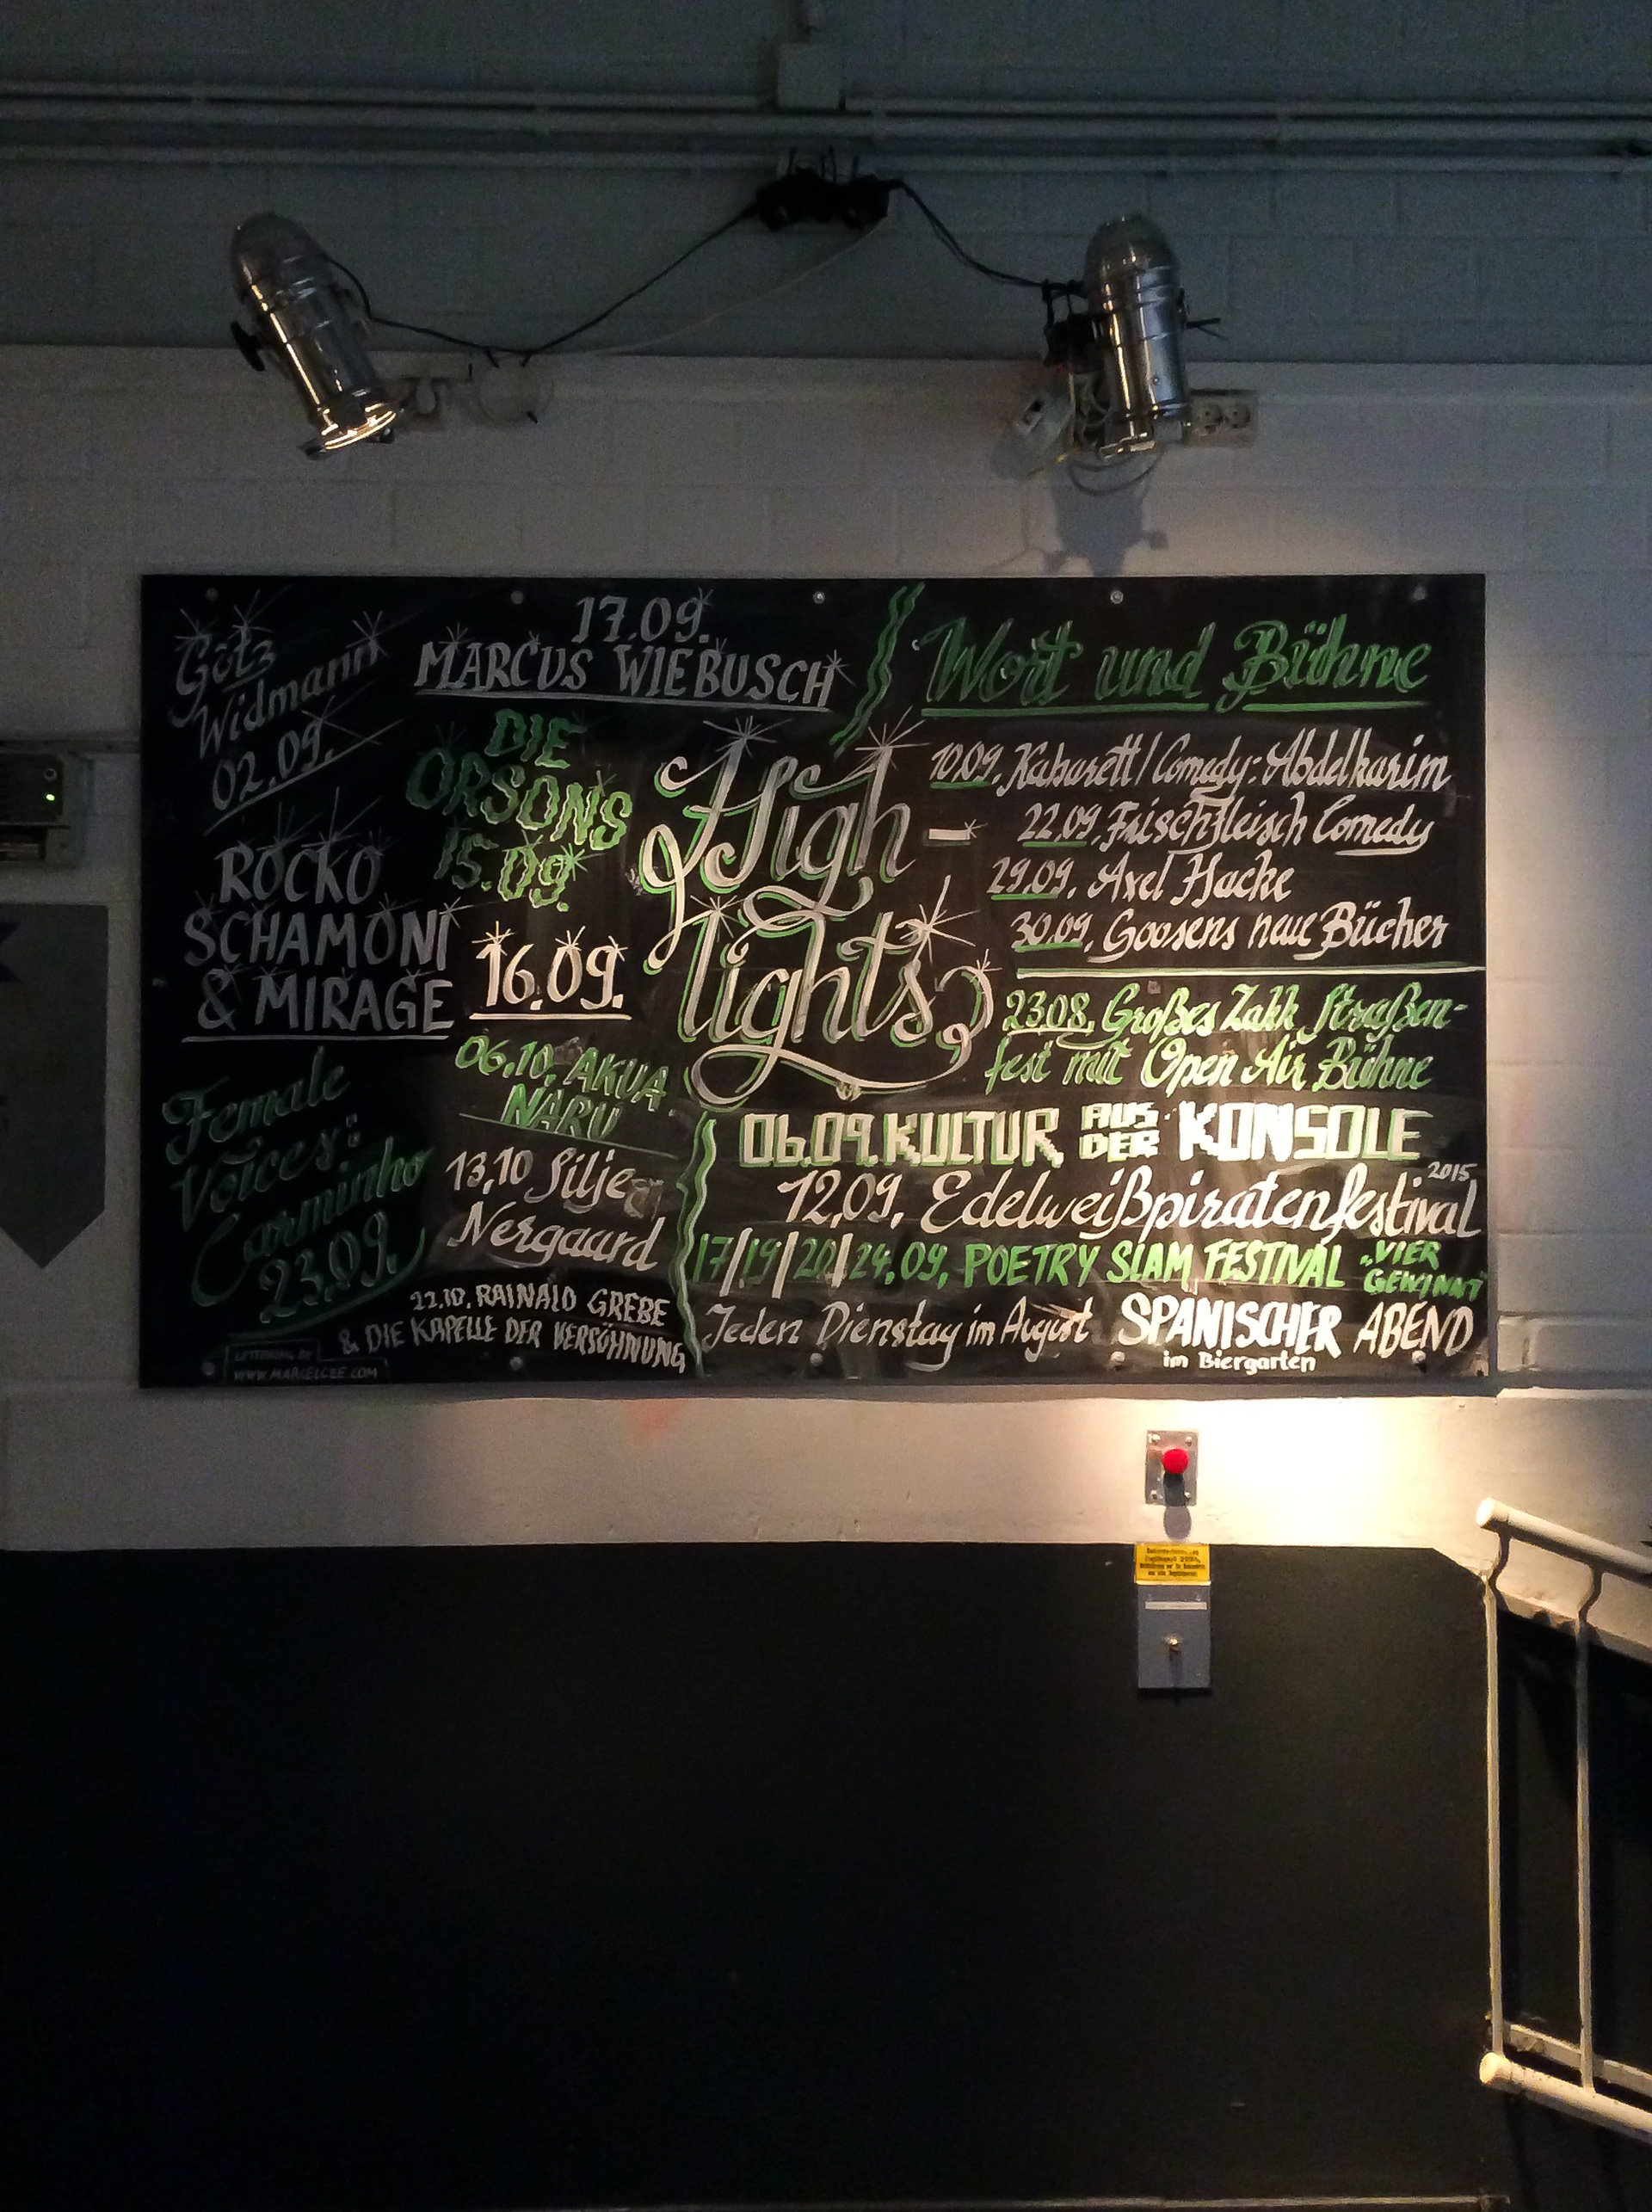 Götz
Widmann
02.09.
17.09.
MARCUS WIEBUSCH
DIE
ORSONS
15.09.
ROCKO
SCHAMONI
& MIRAGE
16.09.
Female
Voices:
Carminho
23.09.
06.10. AKUA
NARU
13.10 Silje
Nergaard
22.10. RAINALD GREBE
& DIE KAPELLE DER VERSÖHNUNG
LETTERING BY
WWW.MARCELCEE.COM
High-
lights
Wort und Bühne
10.09. Kabarett/Comedy: Abdelkarim
22.09. Frischfleisch Comedy
29.09. Axel Hacke
30.09. Goosens neue Bücher
23.08. Großes Zakk Straßen-
fest mit Open Air Bühne
06.09. KULTUR AUS DER KONSOLE
12.09. Edelweißpiratenfestival 2015
17/19/20/24.09. POETRY SLAM FESTIVAL „VIER GEWINNT“
Jeden Dienstag im August SPANISCHER ABEND
im Biergarten